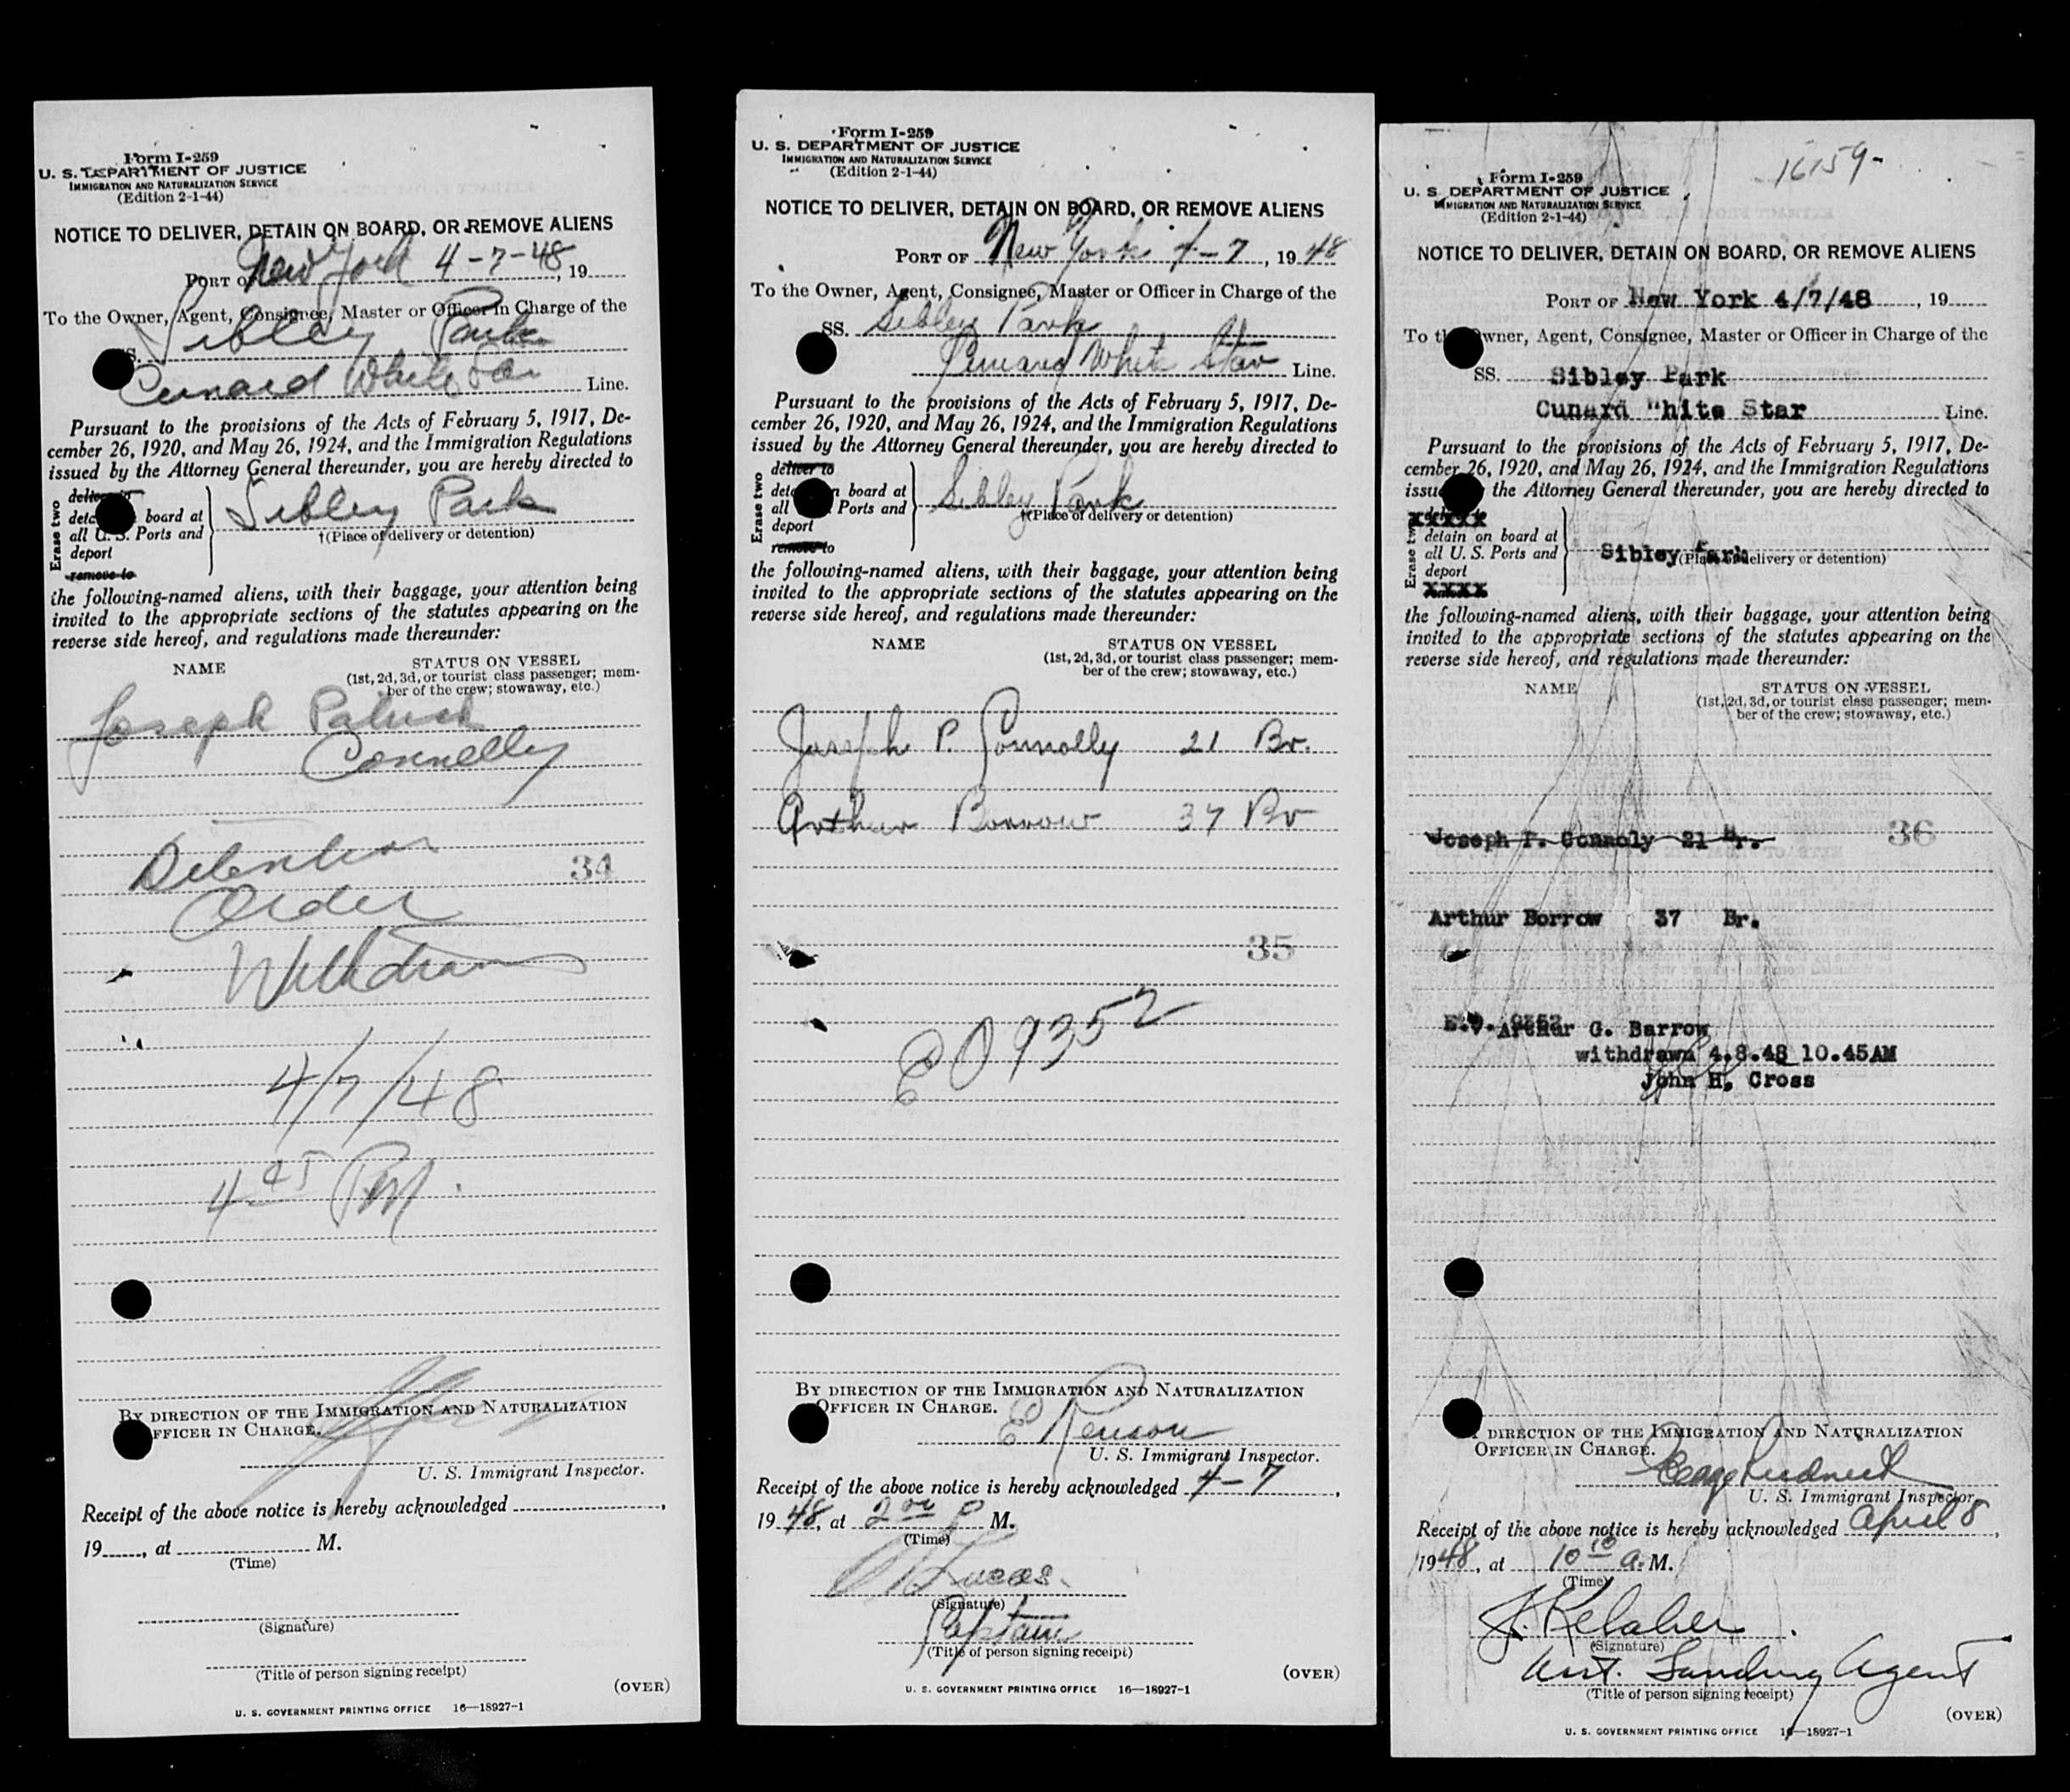 Form I-259
U. S. DEPARTMENT OF JUSTICE
IMMIGRATION AND NATURALIZATION SERVICE
(Edition 2-1-44)
NOTICE TO DELIVER, DETAIN ON BOARD, OR REMOVE ALIENS
PORT OF New York 4-7-48, 19
To the Owner, Agent, Consignee, Master or Officer in Charge of the
Sibley Park
Cunard White Star Line.
Pursuant to the provisions of the Acts of February 5, 1917, De-
cember 26, 1920, and May 26, 1924, and the Immigration Regulations
issued by the Attorney General thereunder, you are hereby directed to
Erase two
deliver to
board at
all U. S. Ports and
deport
remove to
Sibley Park
†(Place of delivery or detention)
the following-named aliens, with their baggage, your attention being
invited to the appropriate sections of the statutes appearing on the
reverse side hereof, and regulations made thereunder:
NAME STATUS ON VESSEL
(1st, 2d, 3d, or tourist class passenger; mem-
ber of the crew; stowaway, etc.)
Joseph Patrick
Connelly
Detention
34
Order
Withdrawn
4/7/48
4 45 PM.
BY DIRECTION OF THE IMMIGRATION AND NATURALIZATION
OFFICER IN CHARGE.
U. S. Immigrant Inspector.
Receipt of the above notice is hereby acknowledged ,
19 , at M.
(Time)
(Signature)
(Title of person signing receipt)
(OVER)
U. S. GOVERNMENT PRINTING OFFICE 16—18927-1
Form I-259
U. S. DEPARTMENT OF JUSTICE
IMMIGRATION AND NATURALIZATION SERVICE
(Edition 2-1-44)
NOTICE TO DELIVER, DETAIN ON BOARD, OR REMOVE ALIENS
PORT OF New York 4-7, 19 48
To the Owner, Agent, Consignee, Master or Officer in Charge of the
SS. Sibley Park
Cunard White Star Line.
Pursuant to the provisions of the Acts of February 5, 1917, De-
cember 26, 1920, and May 26, 1924, and the Immigration Regulations
issued by the Attorney General thereunder, you are hereby directed to
Erase two
deliver to
board at
all Ports and
deport
remove to
Sibley Park
†(Place of delivery or detention)
the following-named aliens, with their baggage, your attention being
invited to the appropriate sections of the statutes appearing on the
reverse side hereof, and regulations made thereunder:
NAME STATUS ON VESSEL
(1st, 2d, 3d, or tourist class passenger; mem-
ber of the crew; stowaway, etc.)
Joseph P. Connolly 21 Br.
Arthur Borrow 37 Br
35
EO 9352
BY DIRECTION OF THE IMMIGRATION AND NATURALIZATION
OFFICER IN CHARGE.
E Renson
U. S. Immigrant Inspector.
Receipt of the above notice is hereby acknowledged 4-7,
19 48, at 2 00 P M.
(Time)
Lucas
(Signature)
Captain
(Title of person signing receipt)
(OVER)
U. S. GOVERNMENT PRINTING OFFICE 16—18927-1
16159-
Form I-259
U. S. DEPARTMENT OF JUSTICE
IMMIGRATION AND NATURALIZATION SERVICE
(Edition 2-1-44)
NOTICE TO DELIVER, DETAIN ON BOARD, OR REMOVE ALIENS
PORT OF New York 4/7/48, 19
To the Owner, Agent, Consignee, Master or Officer in Charge of the
SS. Sibley Park
Cunard "hite Star Line.
Pursuant to the provisions of the Acts of February 5, 1917, De-
cember 26, 1920, and May 26, 1924, and the Immigration Regulations
issued the Attorney General thereunder, you are hereby directed to
Erase two
xxxxx
detain on board at
all U. S. Ports and
deport
xxxx
Sibley Park
(Place of delivery or detention)
the following-named aliens, with their baggage, your attention being
invited to the appropriate sections of the statutes appearing on the
reverse side hereof, and regulations made thereunder:
NAME STATUS ON VESSEL
(1st, 2d, 3d, or tourist class passenger; mem-
ber of the crew; stowaway, etc.)
Joseph P. Connoly 21 Br.
36
Arthur Borrow 37 Br.
Arthur G. Barrow
withdrawn 4.8.48 10.45AM
John H. Cross
DIRECTION OF THE IMMIGRATION AND NATURALIZATION
OFFICER IN CHARGE.
George Rudnick
U. S. Immigrant Inspector
Receipt of the above notice is hereby acknowledged April 8,
1948, at 10 10 a. M.
(Time)
J. Kelaher
(Signature)
Asst. Landing Agent
(Title of person signing receipt)
(OVER)
U. S. GOVERNMENT PRINTING OFFICE 16—18927-1